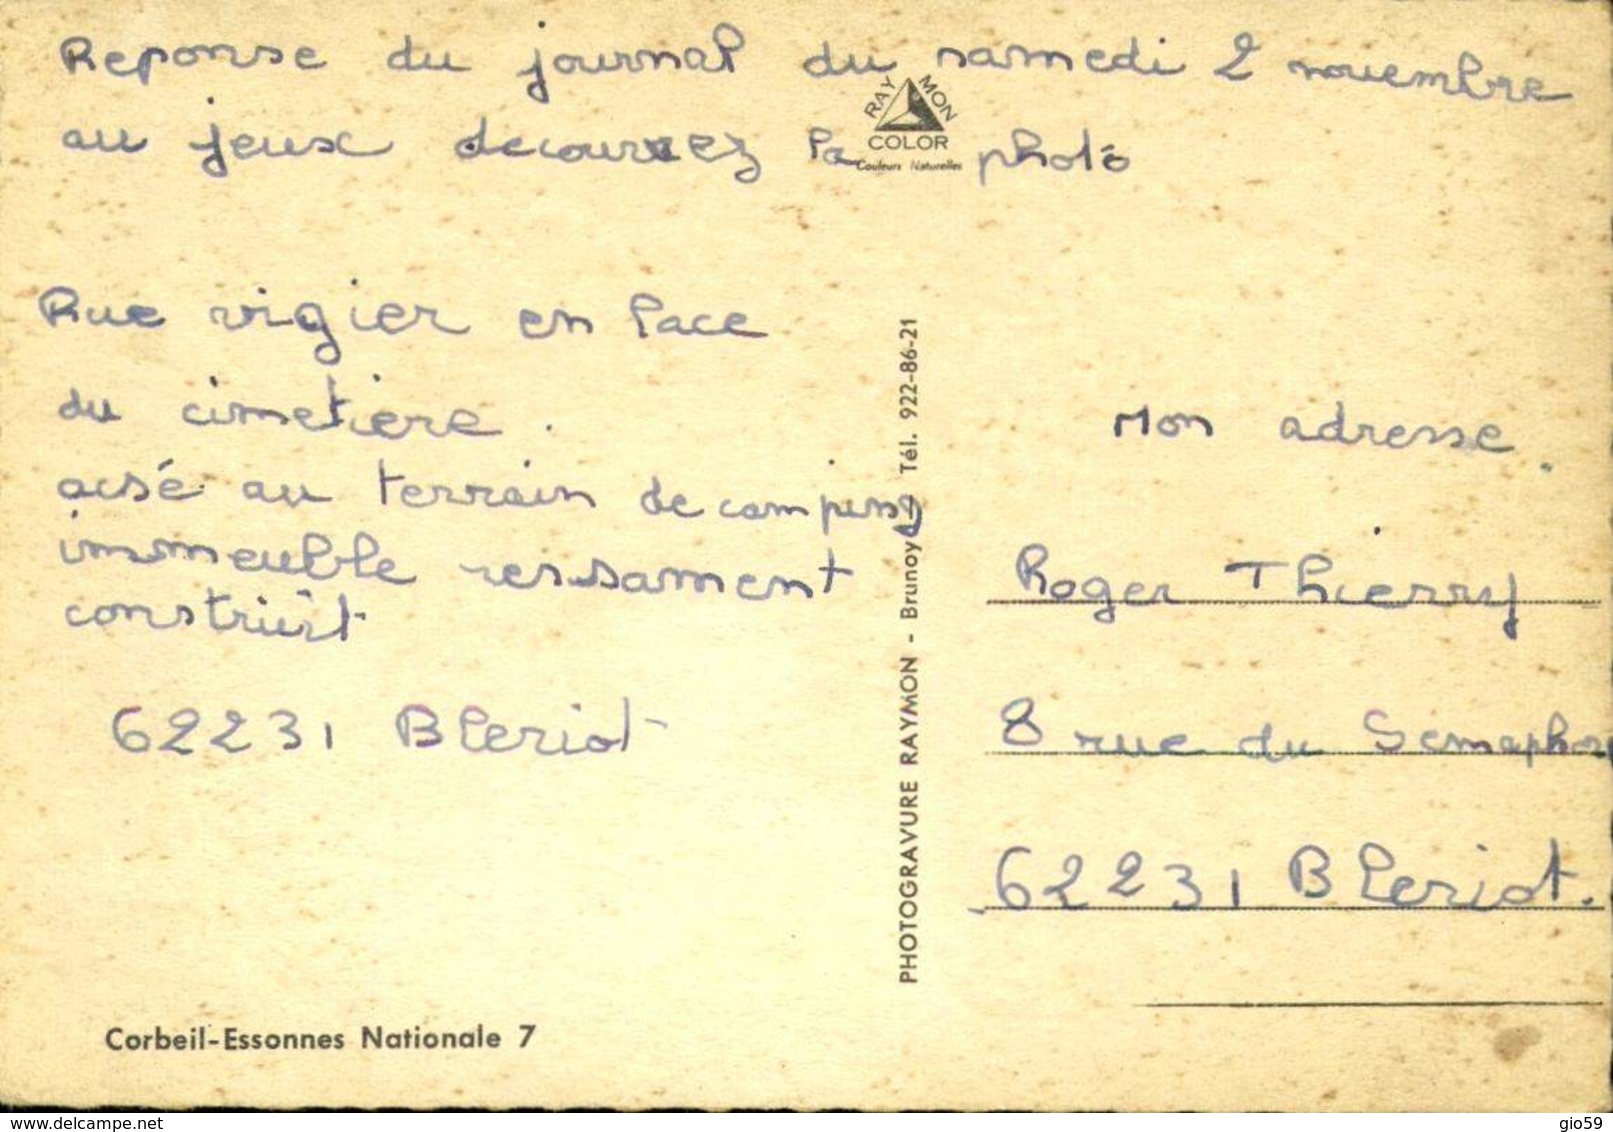 Reponse du journal du samedi 2 novembre
au jeux decouvrez la photo
RAYMON
COLOR
Couleurs Naturelles
Rue vigier en face
du cimetiere.
acsé au terrain de camping
immeuble ressament
construit
62231 Bleriot
Corbeil-Essonnes Nationale 7
PHOTOGRAVURE RAYMON - Brunoy - Tél. 922-86-21
Mon adresse.
Roger Thierry
8 rue du Semaphore
62231 Bleriot.
www.delcampe.net
gio59